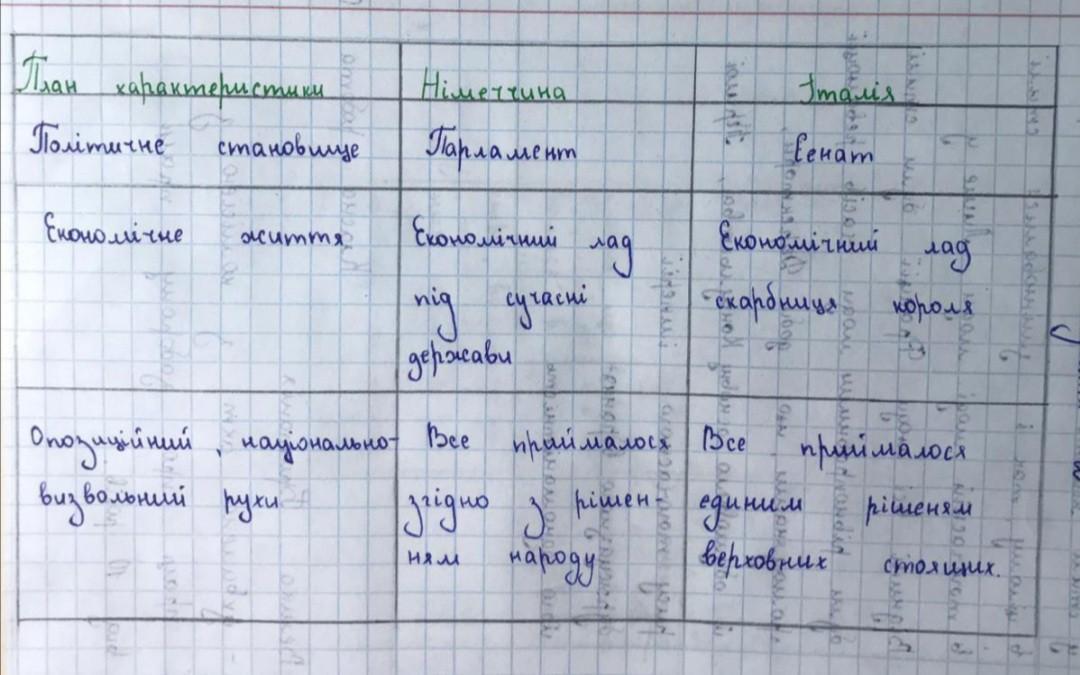 План характеристики Німеччина Італія
Політичне становище Парламент Сенат
Економічне життя Економічний лад Економічний лад
під сучасні скарбниця короля
держави
Опозиційний, національно- Все приймалося Все приймалося
визвольний рухи згідно з рішен- единим рішеням
ням народу верховних стоящих.